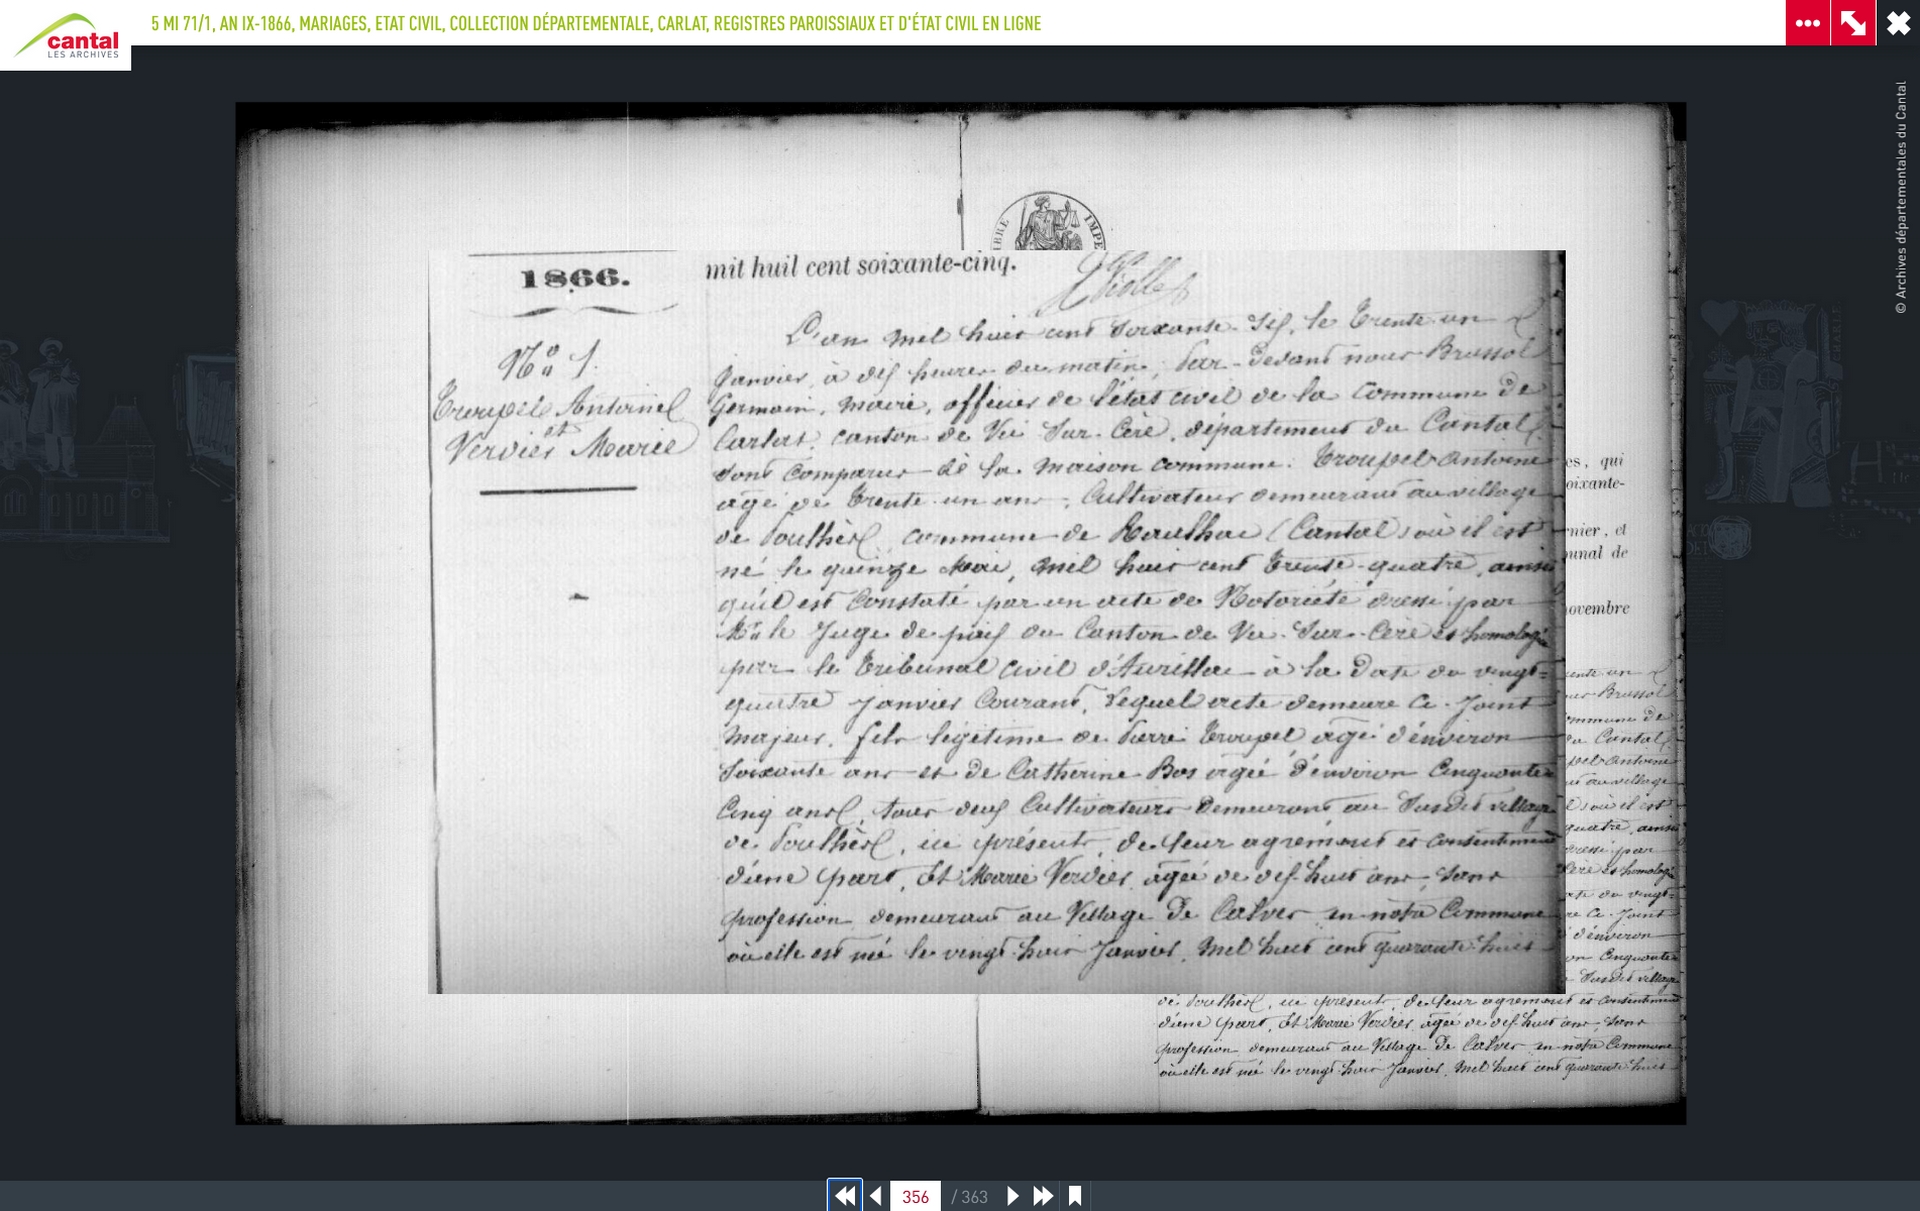 5 MI 71/1, AN IX-1866, MARIAGES, ETAT CIVIL, COLLECTION DÉPARTEMENTALE, CARLAT, REGISTRES PAROISSIAUX ET D'ÉTAT CIVIL EN LIGNE
cantal
LES ARCHIVES
© Archives départementales du Cantal
IBRE IMPE
mit huil cent soixante-cinq.
1866.
No 1.
Troupel Antoine
et
Verdier Marie
L'an mil huit cent soixante-six, le trente un
Janvier, à dix heures du matin, par-devant nous Brussol
Germain, maire, officier de l'état civil de la commune de
Carlat, canton de Vic-sur-Cère, département du Cantal,
sont comparus dè la maison commune. Troupel Antoine
agé de trente un ans, Cultivateur demeurant au village
de Poulhès, commune de Raulhac (Cantal) où il est
né le quinze Mai, mil huit cent trente-quatre, ainsi
qu'il est constaté par un acte de Notoriété dressé par
Mr le Juge de paix du Canton de Vic-sur-Cère et homologé
par le tribunal civil d'Aurillac à la date du vingt-
quatre Janvier Courant, lequel acte demeure ci-joint
majeur, fils légitime de Pierre Troupel agé d'environ
soixante ans et de Catherine Bos agée d'environ Cinquante
Cinq ans, tous deux Cultivateurs demeurant au susdit village
de Poulhès, ici présents, de leur agrément et consentement
d'une part, Et Marie Verdier, agée de dix-huit ans, sans
profession demeurant au Village de Calves en notre Commune
où elle est née le vingt-huit Janvier, mil huit cent quarante-huit
es, qui
oixante-
rnier, et
unal de
ovembre
356 / 363